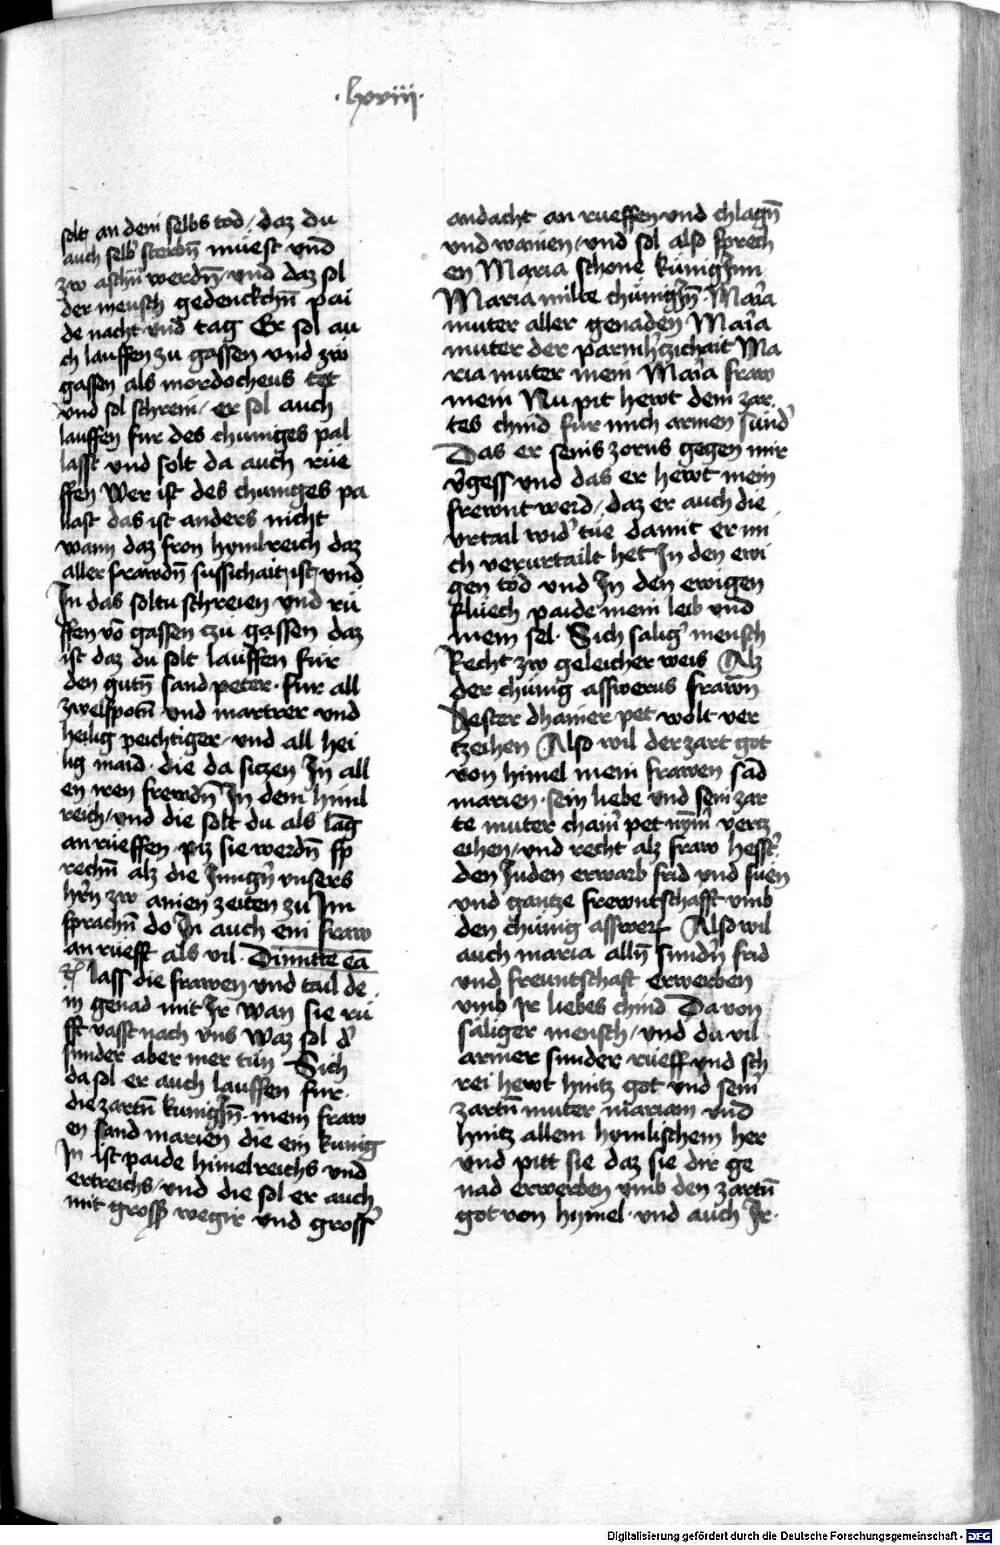 ·lxviii·
solt an dem selbs tod / daz du
auch selb' sterbn̄ müest vnd
zw aschn̄ werdn̄ / vnd daz sol
der mensch gedenckchn̄ pai
de nacht vnd tag Er sol au
ch lauffen zu gassen vnd zw
gassen als mordocheus tet
vnd sol schrein / er sol auch
lauffen fur des chuniges pal
lasst vnd solt da auch rüe
ffen Wer ist des chuniges pa
llast das ist anders nicht
wann daz fron hymlreich daz
aller frawdn̄ sussichait ist vnd
In das soltu schreien vnd rü
ffen vō gassen czu gassen daz
ist daz du solt lauffen für
den gutn̄ sand peter · fur all
zwelfpotn̄ vnd martrer vnd
heilig peichtiger / vnd all hei
lig maid · die da siczen In all
en iren frewdn̄ In dem himl
reich / vnd die solt du als lāg
an rüeffen piz sie werdn̄ sp
rechn̄ alz die Jungn̄ vnsers
hr̄n zw ainen zeiten zu Im
sprachn̄ do In auch ein fraw
an rüefft als vil · Dimitte eā
zc̄ lass die frawen vnd tail de
in genad mit Ir wan sie rü
fft vasst nach vns Waz sol d'
sunder aber mer tun Sich
da sol er auch lauffen fur
die zartn̄ kunigīn̄ · mein fraw
en sand marien die ein kunig
In ist paide himelreichs vnd
ertreichs / vnd die sol er auch
mit gross' wegir vnd gross'
andacht an rueffen vnd chlagn̄
vnd wainen / vnd sol also sprech
en Maria schone künigīnn
Maria milte chünigīn̄ · Mar̄a
muter aller genaden Mar̄a
muter der parmh'czichait Ma
ria muter mein Mar̄a fraw
mein Nu pit hewt dein zar
tes chind fur mich armen sünd'
Das er seins zorns gegen mir
v'gess vnd das er hewt mein
frewnt werd / daz er auch die
vrtail wid' tüe damit er mi
ch verurtailt het In den ewi
gen tod vnd In den ewigen
fluech paide mein leib vnd
mein sel · Sich salig' mensch
Recht zw geleicher weis Alz
der chünig asswerus frawn̄
Hester dhainer pet wolt ver
czeihen Also wil der zart got
von himel mein frawen sād
marien · sein liebe vnd sein zar
te muter chain' pet nȳm' vercz
eihen / vnd recht alz fraw hesst'
den Juden erwarb frid vnd suen
vnd gantze frewntschafft vmb
den chünig asswer₉ Also wil
auch maria alln̄ sundn̄ frid
vnd freuntschaft erwerben
vmb ir liebes chind Da von
säliger mensch / vnd du vil
armer sunder rüeff vnd sch
rei hewt hintz got vnd sein'
zartn̄ muter mariam vnd
hintz allem hymlischem her
vnd pitt sie daz sie dir ge
nad erwerben vmb den zartn̄
got von hymel · vnd auch Ir ·
Digitalisierung gefördert durch die Deutsche Forschungsgemeinschaft - DFG